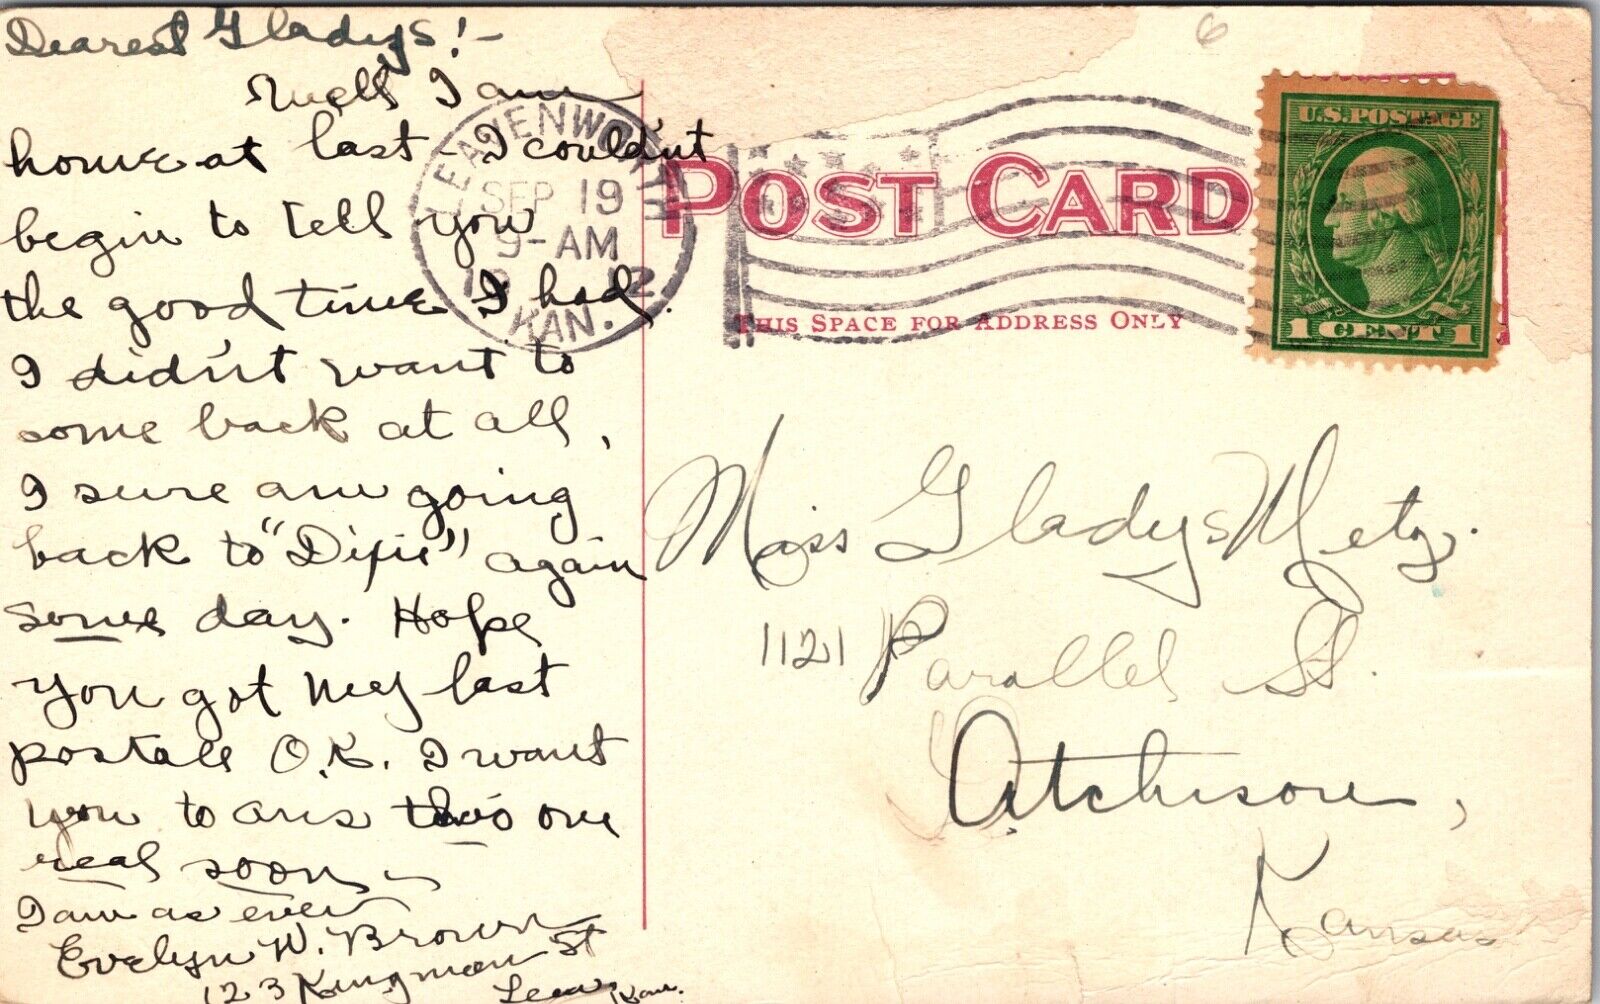 Dearest Gladys!-
Well I am
home at last - I couldn't
begin to tell you
the good time I had.
I didn't want to
come back at all,
I sure am going
back to "Dixie" again
some day. Hope
you got my last
postall O.K. I want
you to ans this one
real soon -
I am as ever
Evelyn W. Brown
123 Kingman St
Kan.
6
LEAVENWORTH
SEP 19
9-AM
1912
KAN.
POST CARD
THIS SPACE FOR ADDRESS ONLY
U.S. POSTAGE
1 CENT 1
Miss Gladys Metz.
1121 Parallel St.
Atchison,
Kansas